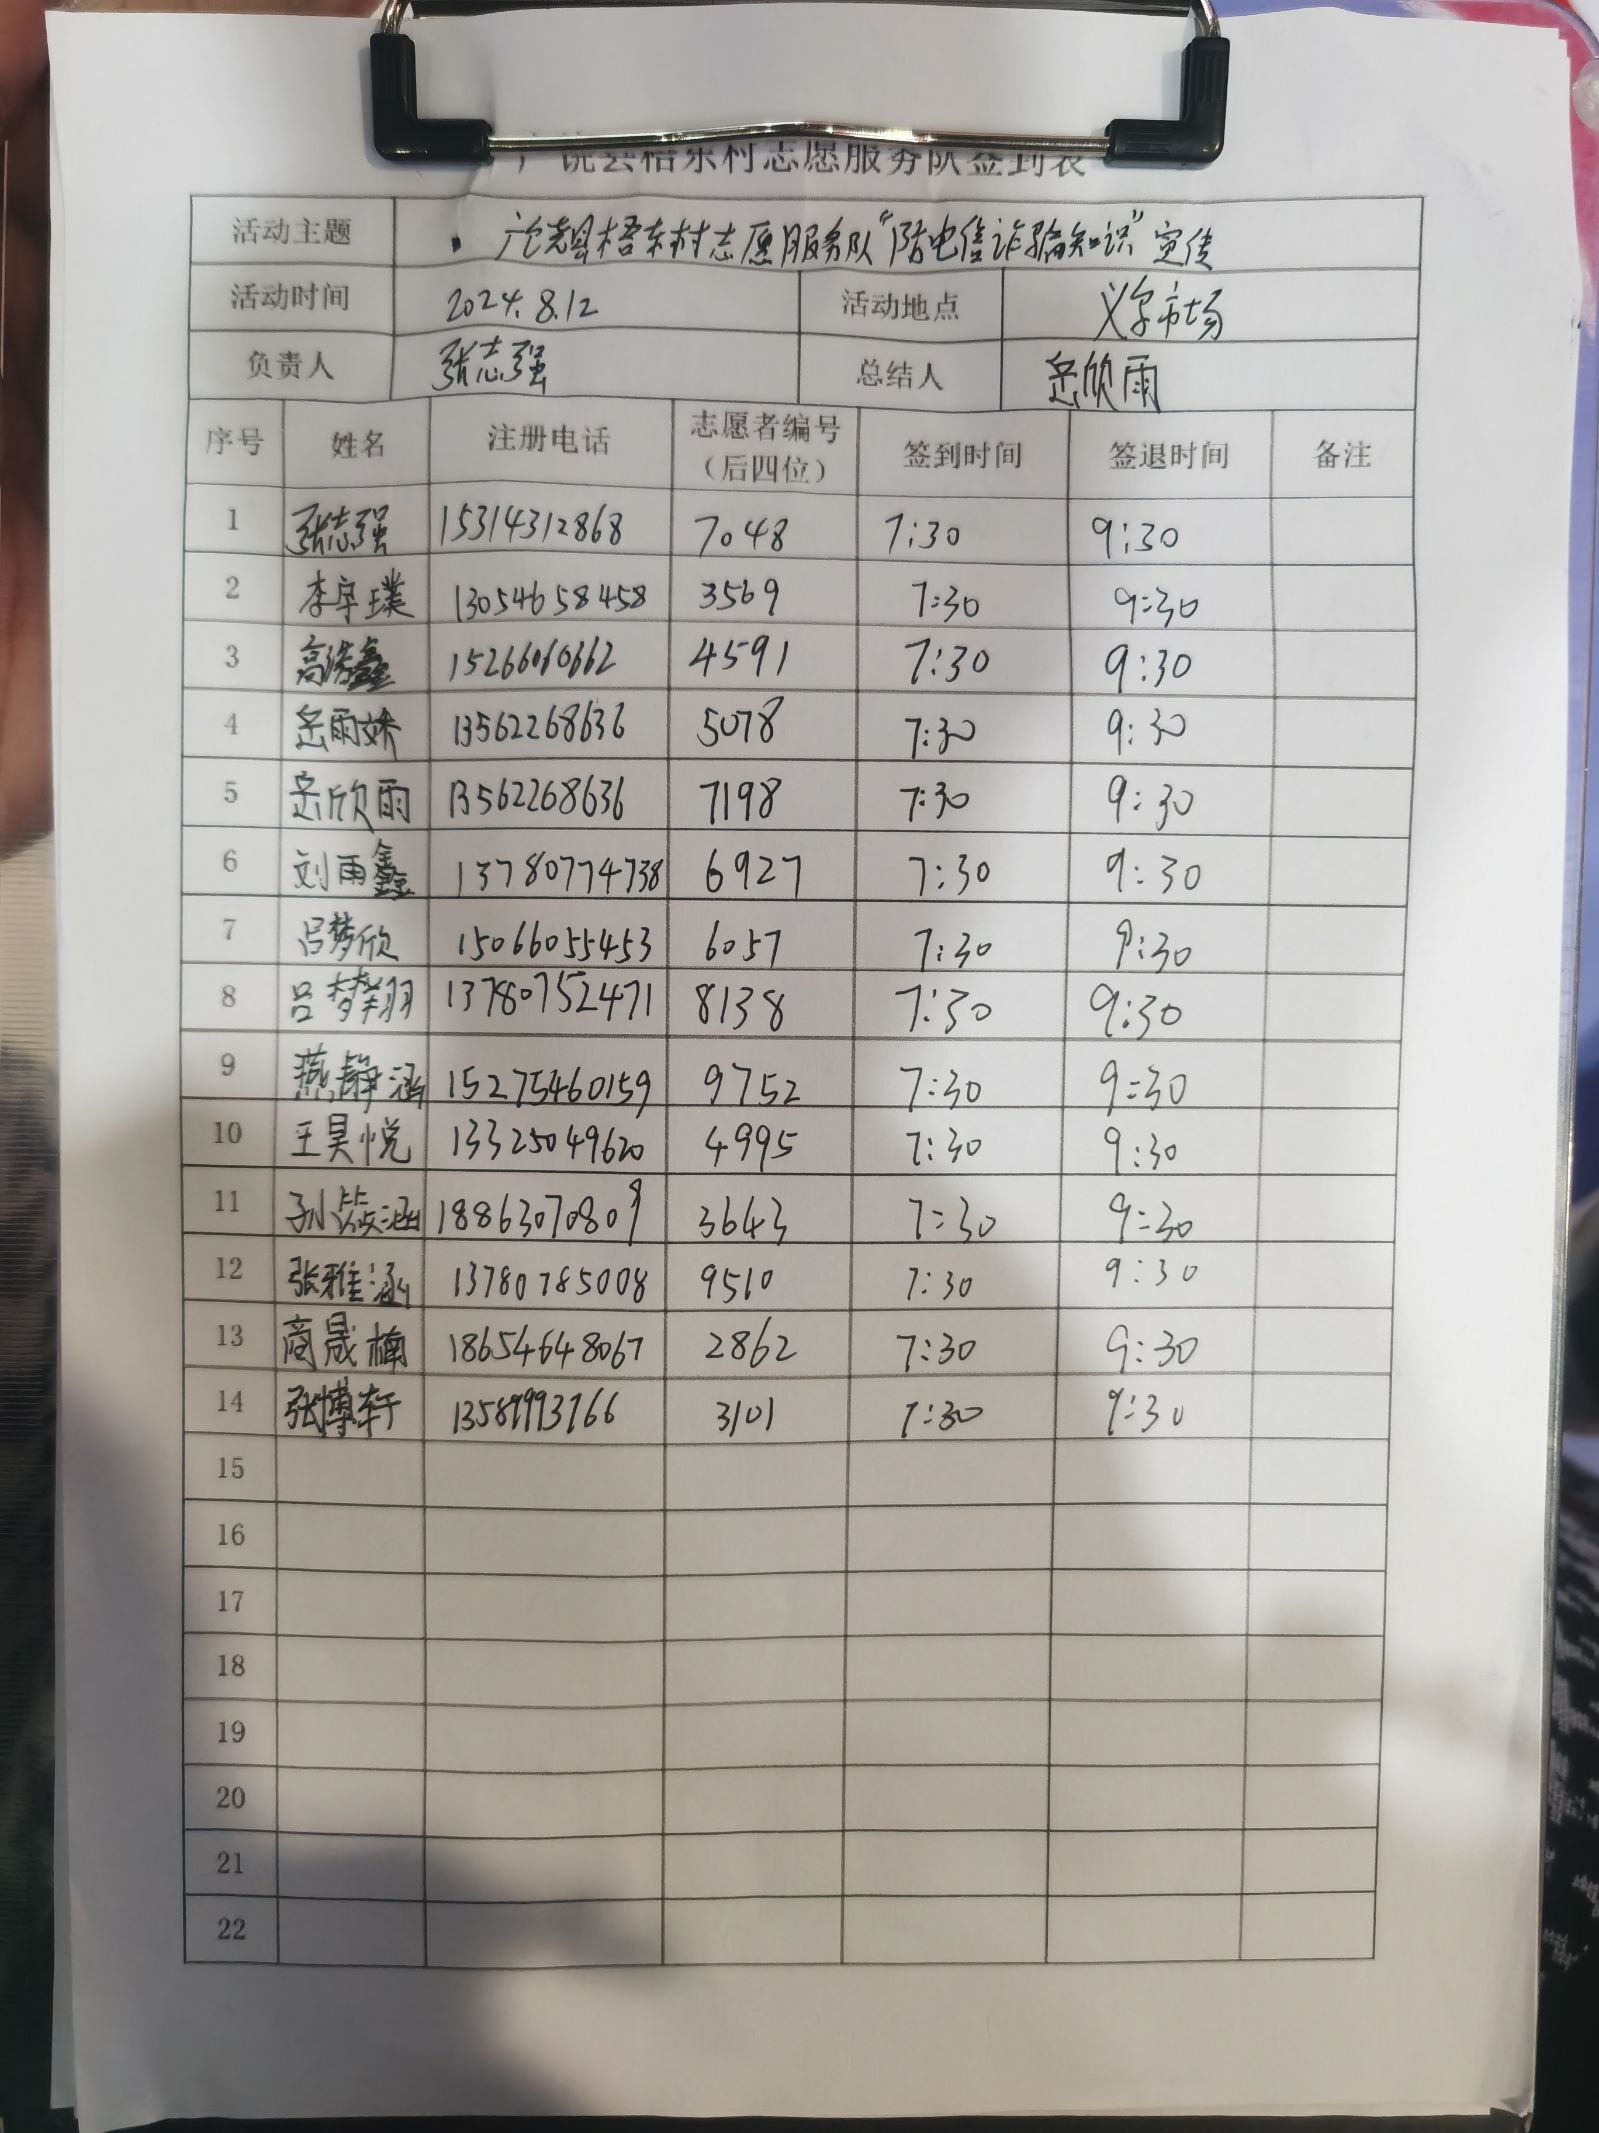 广饶县梧东村志愿服务队签到表
活动主题 广饶县梧东村志愿服务队“防电信诈骗知识”宣传
活动时间 2024.8.12 活动地点 义字市场
负责人 张志强 总结人 岳欣雨
序号 姓名 注册电话 志愿者编号（后四位） 签到时间 签退时间 备注
1 张志强 15314312868 7048 7:30 9:30
2 李宇璞 13054658458 3569 7:30 9:30
3 高浩鑫 15266060662 4591 7:30 9:30
4 岳雨 13562268636 5078 7:30 9:30
5 岳欣雨 13562268636 7198 7:30 9:30
6 刘雨鑫 13780774738 6927 7:30 9:30
7 吕梦欣 15066055453 6057 7:30 9:30
8 吕梦翔 13780752471 8138 7:30 9:30
9 燕静涵 15275460159 9752 7:30 9:30
10 王昊悦 13325049620 4995 7:30 9:30
11 孙筱涵 18863070809 3643 7:30 9:30
12 张雅涵 13780785008 9510 7:30 9:30
13 商晟楠 18654648067 2862 7:30 9:30
14 张博轩 3101 7:30 9:30
15
16
17
18
19
20
21
22